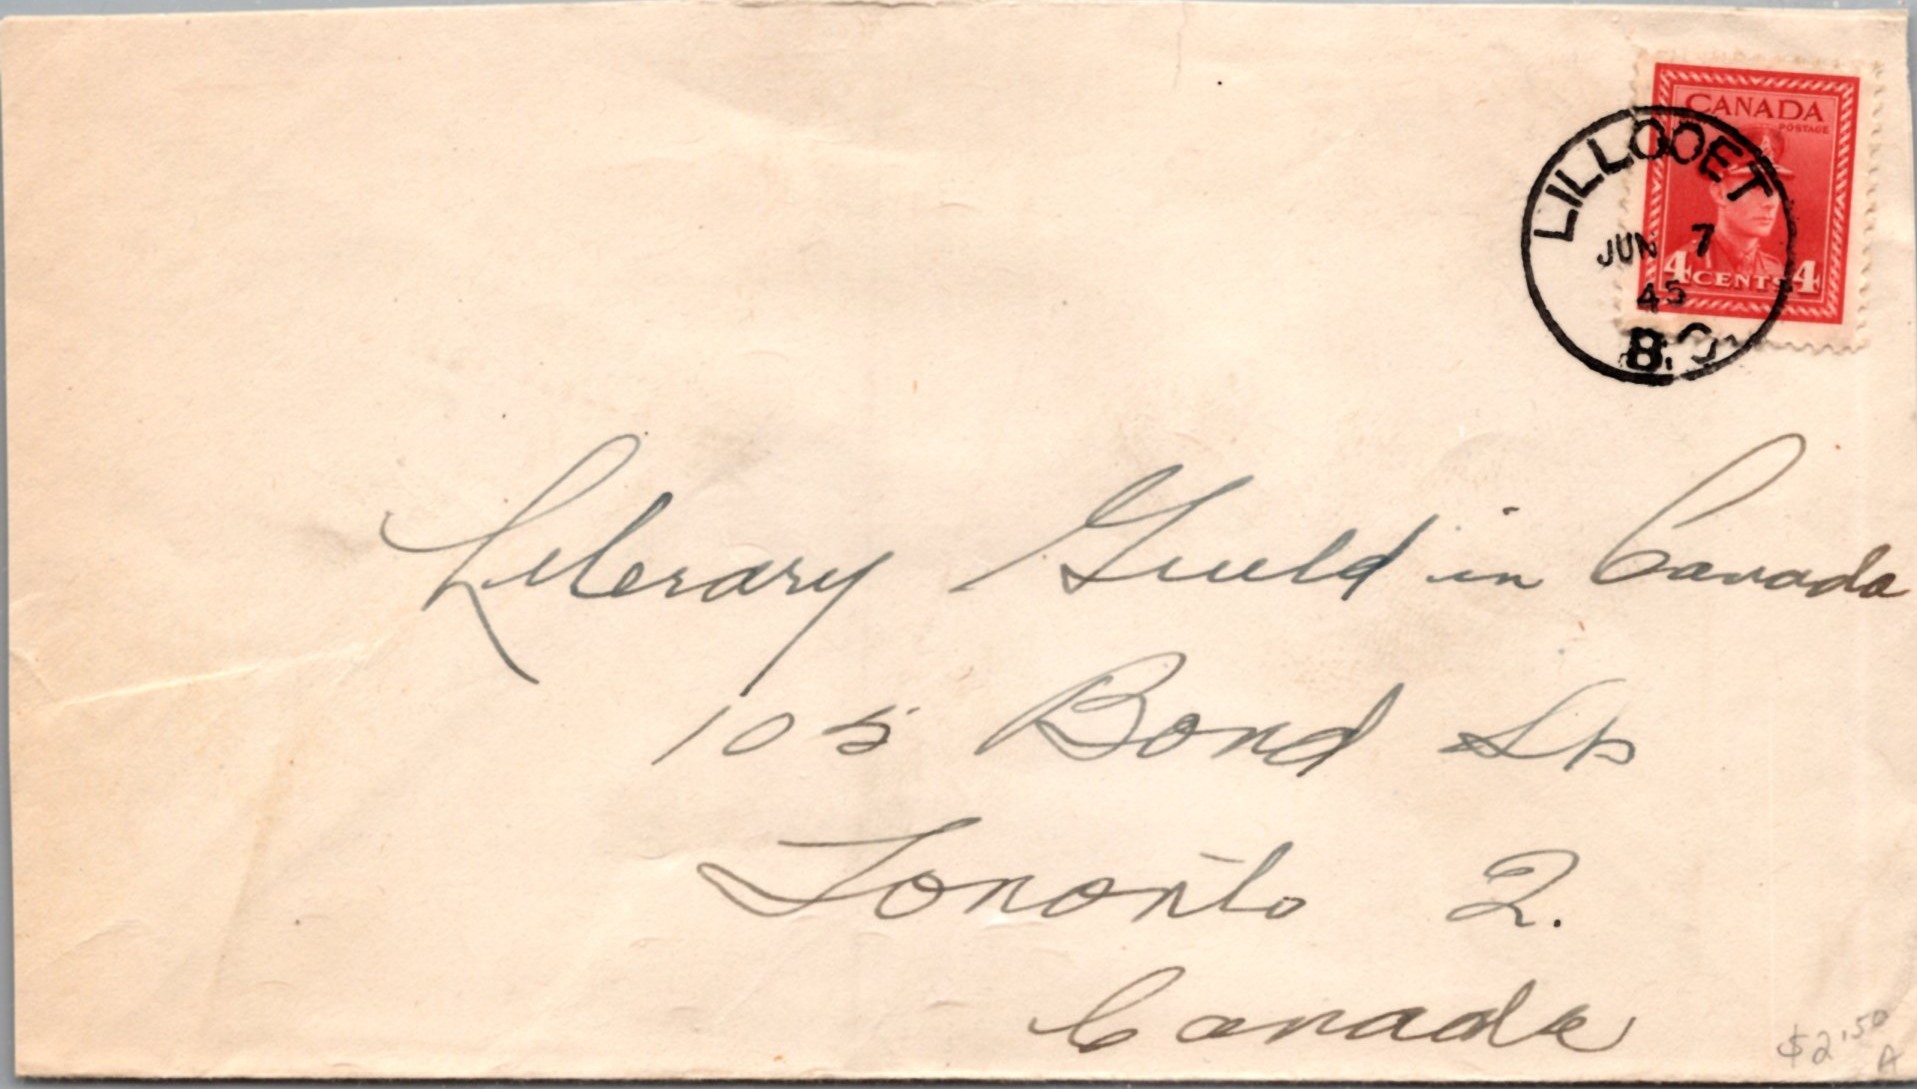 CANADA
POSTAGE
4 CENTS 4
LILLOOET
JUN 7
45
B.C.
Literary Guild in Canada
105 Bond St
Toronto 2.
Canada
$2.50
A